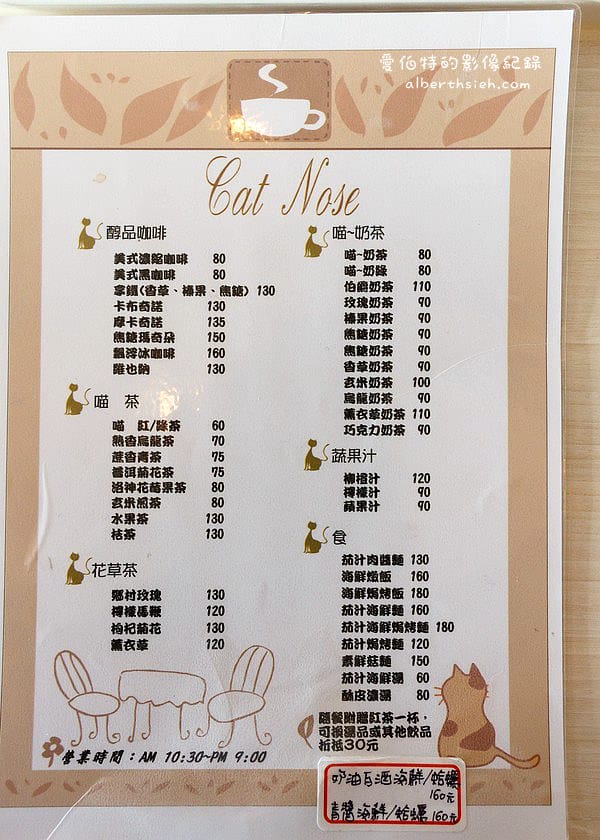 愛伯特的影像紀錄
alberthsieh.com
Cat Nose
醇品咖啡
美式濃縮咖啡 80
美式黑咖啡 80
拿鐵(香草、榛果、焦糖) 130
卡布奇諾 130
摩卡奇諾 135
焦糖瑪奇朵 150
飄浮冰咖啡 160
維也納 130
喵 茶
喵 紅/綠茶 60
熟香烏龍茶 70
蔗香青茶 75
普洱菊花茶 75
洛神花莓果茶 80
玄米煎茶 80
水果茶 130
桔茶 130
花草茶
鄉村玫瑰 130
檸檬馬鞭 120
枸杞菊花 130
薰衣草 120
喵~奶茶
喵~奶茶 80
喵~奶綠 80
伯爵奶茶 110
玫瑰奶茶 90
榛果奶茶 90
焦糖奶茶 90
焦糖奶茶 90
香草奶茶 90
玄米奶茶 100
烏龍奶茶 90
薰衣草奶茶 110
巧克力奶茶 90
蔬果汁
柳橙汁 120
檸檬汁 90
蘋果汁 90
食
茄汁肉醬麵 130
海鮮燉飯 160
海鮮焗烤飯 180
茄汁海鮮麵 160
茄汁海鮮焗烤麵 180
茄汁焗烤麵 120
素鮮菇麵 150
茄汁海鮮湯 60
酥皮濃湯 80
隨餐附贈紅茶一杯，
可換湯品或其他飲品
折抵30元
營業時間：AM 10:30~PM 9:00
奶油白酒海鮮/蛤蠣
160元
青醬海鮮/蛤蠣 160元